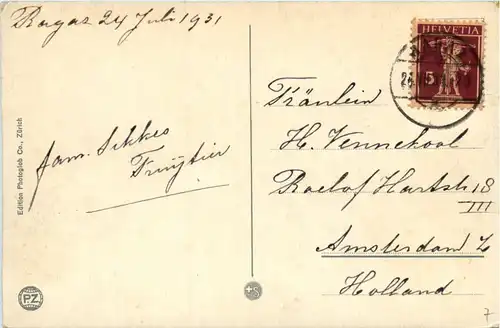 Ragaz 24 Juli 1931
HELVETIA
5
Fräulein
H. Vennekool
Roelof Hartstr 18
III
Amsterdam Z
Holland
fam. Sikkes
Fruÿtier
Edition Photoglob Co., Zürich
P.Z.
S
7